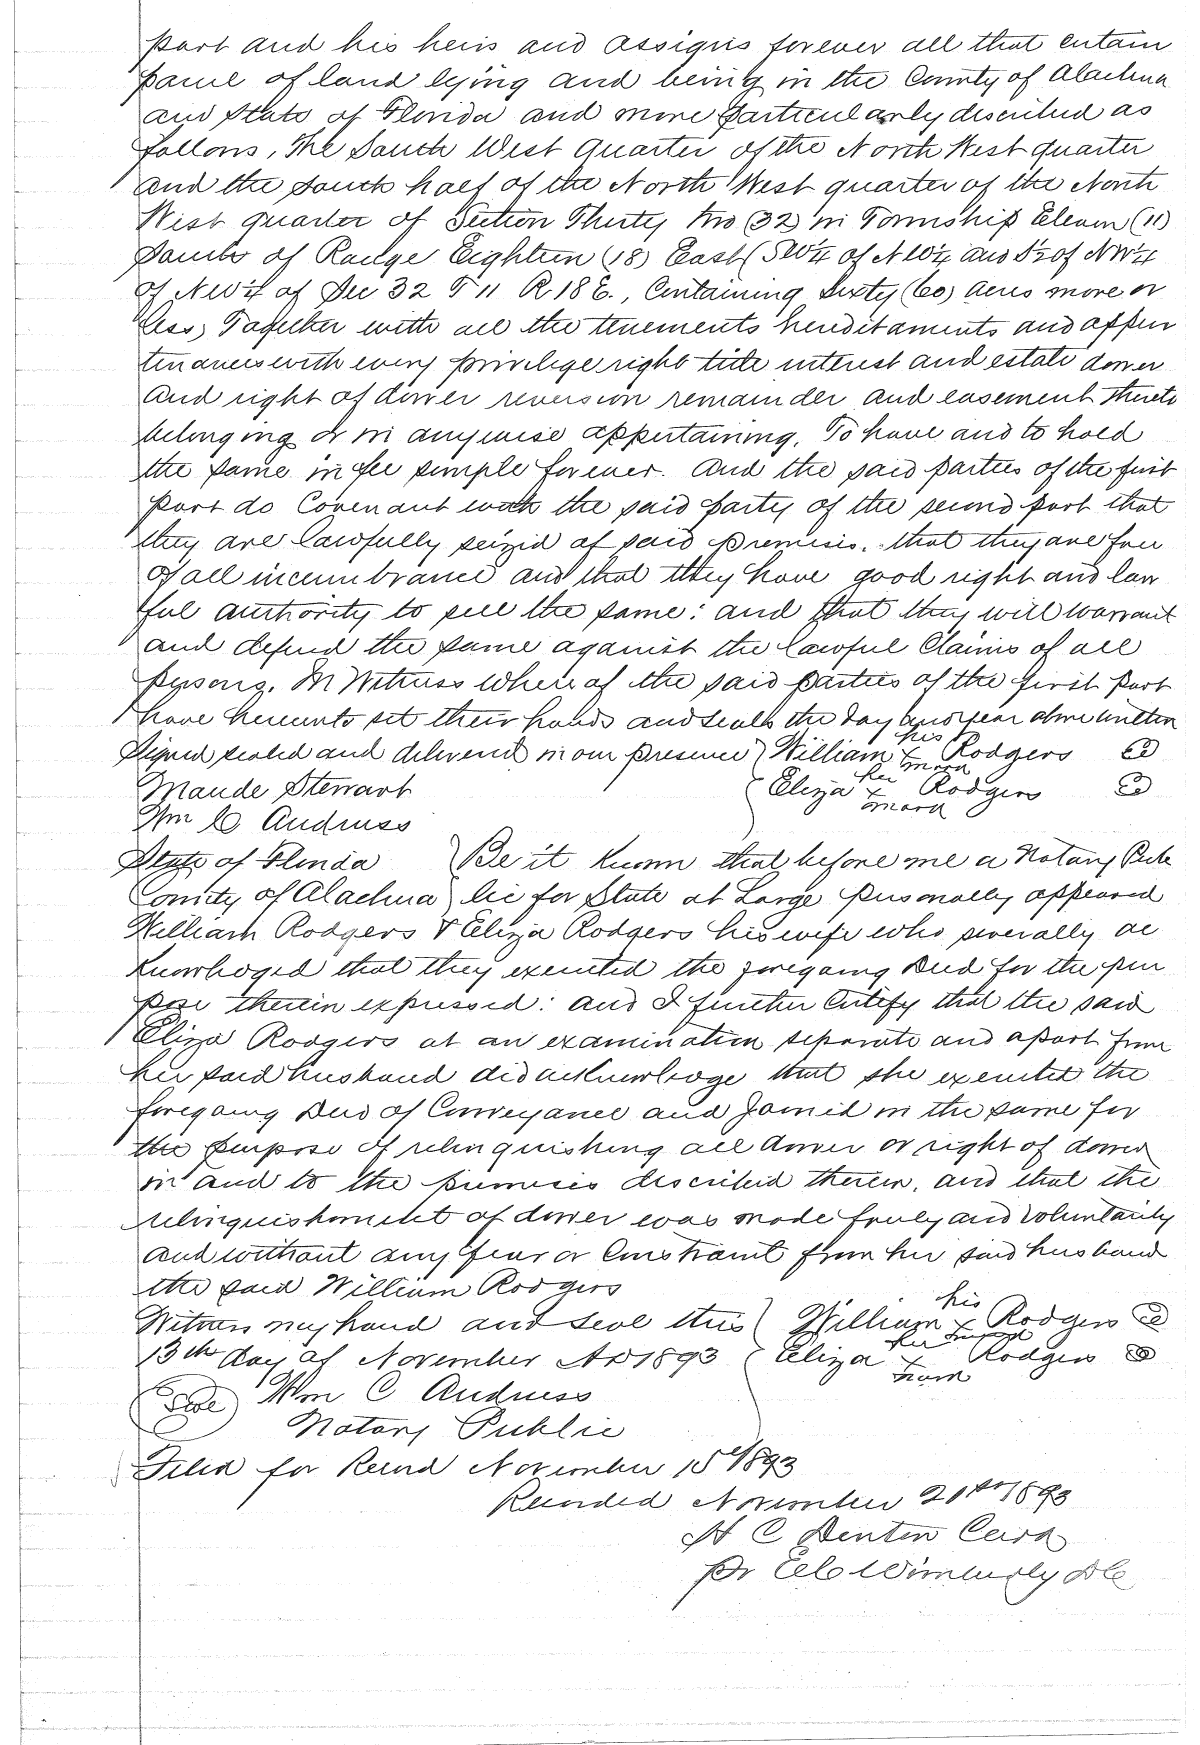 part and his heirs and assigns forever all that certain
parcel of land lying and being in the County of Alachua
and State of Florida and more particularly described as
follows, The South West quarter of the North West quarter
and the south half of the North West quarter of the North
West quarter of Section Thirty two (32) in Township Eleven (11)
South of Range Eighteen (18) East (SW¼ of NW¼ and S½ of NW¼
of NW¼ of Sec 32 T 11 R 18 E., Containing Sixty (60) acres more or
less, Together with all the tenements hereditaments and appur
tinances with every privilege right title interest and estate dower
and right of dower reversion remainder and easement thereto
belonging or in anywise appertaining, To have and to hold
the same in fee simple forever. And the said parties of the first
part do Covenant with the said party of the second part that
they are lawfully seizid of said premises, that they are free
of all incumbrance and that they have good right and law
ful authority to sell the same: and that they will warrant
and defend the same against the lawful Claims of all
persons. In Witness whereof the said parties of the first part
have hereunto set their hands and seals the day and year above written
Signed sealed and delivered in our presence William his x mark Rodgers
Maude Stewart Eliza her x mark Rodgers
Wm C Andruss
State of Florida Be it known that before me a Notary Pub
County of Alachua lic for State at Large personally appeared
William Rodgers & Eliza Rodgers his wife who severally ac
knowledged that they executed the foregoing Deed for the pur
pose therein expressed: and I further Certify that the said
Eliza Rodgers at an examination separate and apart from
her said husband did acknowledge that she executed the
foregoing Deed of Conveyance and Joined in the same for
the purpose of relinquishing all dower or right of dower
in and to the premises described therein, and that the
relinquishment of dower was made freely and voluntarily
and without any fear or Constraint from her said husband
the said William Rodgers
Witness my hand and seal this William his x mark Rodgers
13th day of November AD 1893 Eliza her x mark Rodgers
Seal Wm C Andruss
Notary Public
Filed for Record November 15th 1893
Recorded November 21st 1893
H C Denton Clerk
pr Wimberly DC